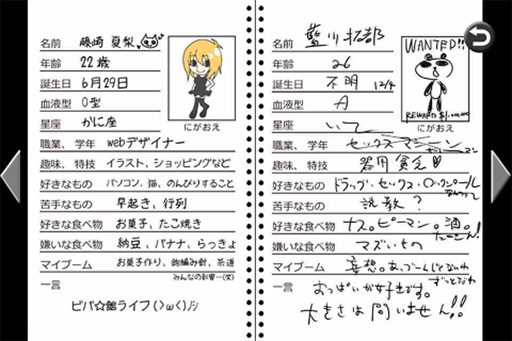 名前 藤崎 夏梨
年齢 22歳
誕生日 6月29日
血液型 O型
星座 かに座
にがおえ
職業、学年 webデザイナー
趣味、特技 イラスト、ショッピングなど
好きなもの パソコン、猫、のんびりすること
苦手なもの 早起き、行列
好きな食べ物 お菓子、たこ焼き
嫌いな食べ物 納豆、バナナ、らっきょ
マイブーム お菓子作り、鉤編み針、茶道
みんなの影響…(笑)
一言
ビバ☆館ライフ(>ω<)ﾉｼ
名前 藍川拓郎
年齢 26
誕生日 不明 12/4
血液型 A
星座 いて
WANTED!!
にがおえ
職業、学年 セックスマシーン
趣味、特技 器用貧乏♥
好きなもの ドラッグ・セックス・ロックンロール
なんつって
苦手なもの 説教?
好きな食べ物 ナス。ピーマン。酒。
たーさん!
嫌いな食べ物 マズいもの
マイブーム 妄想。
ずっとだなぁ
一言 おっぱいが好きです。
大きさは問いません!!